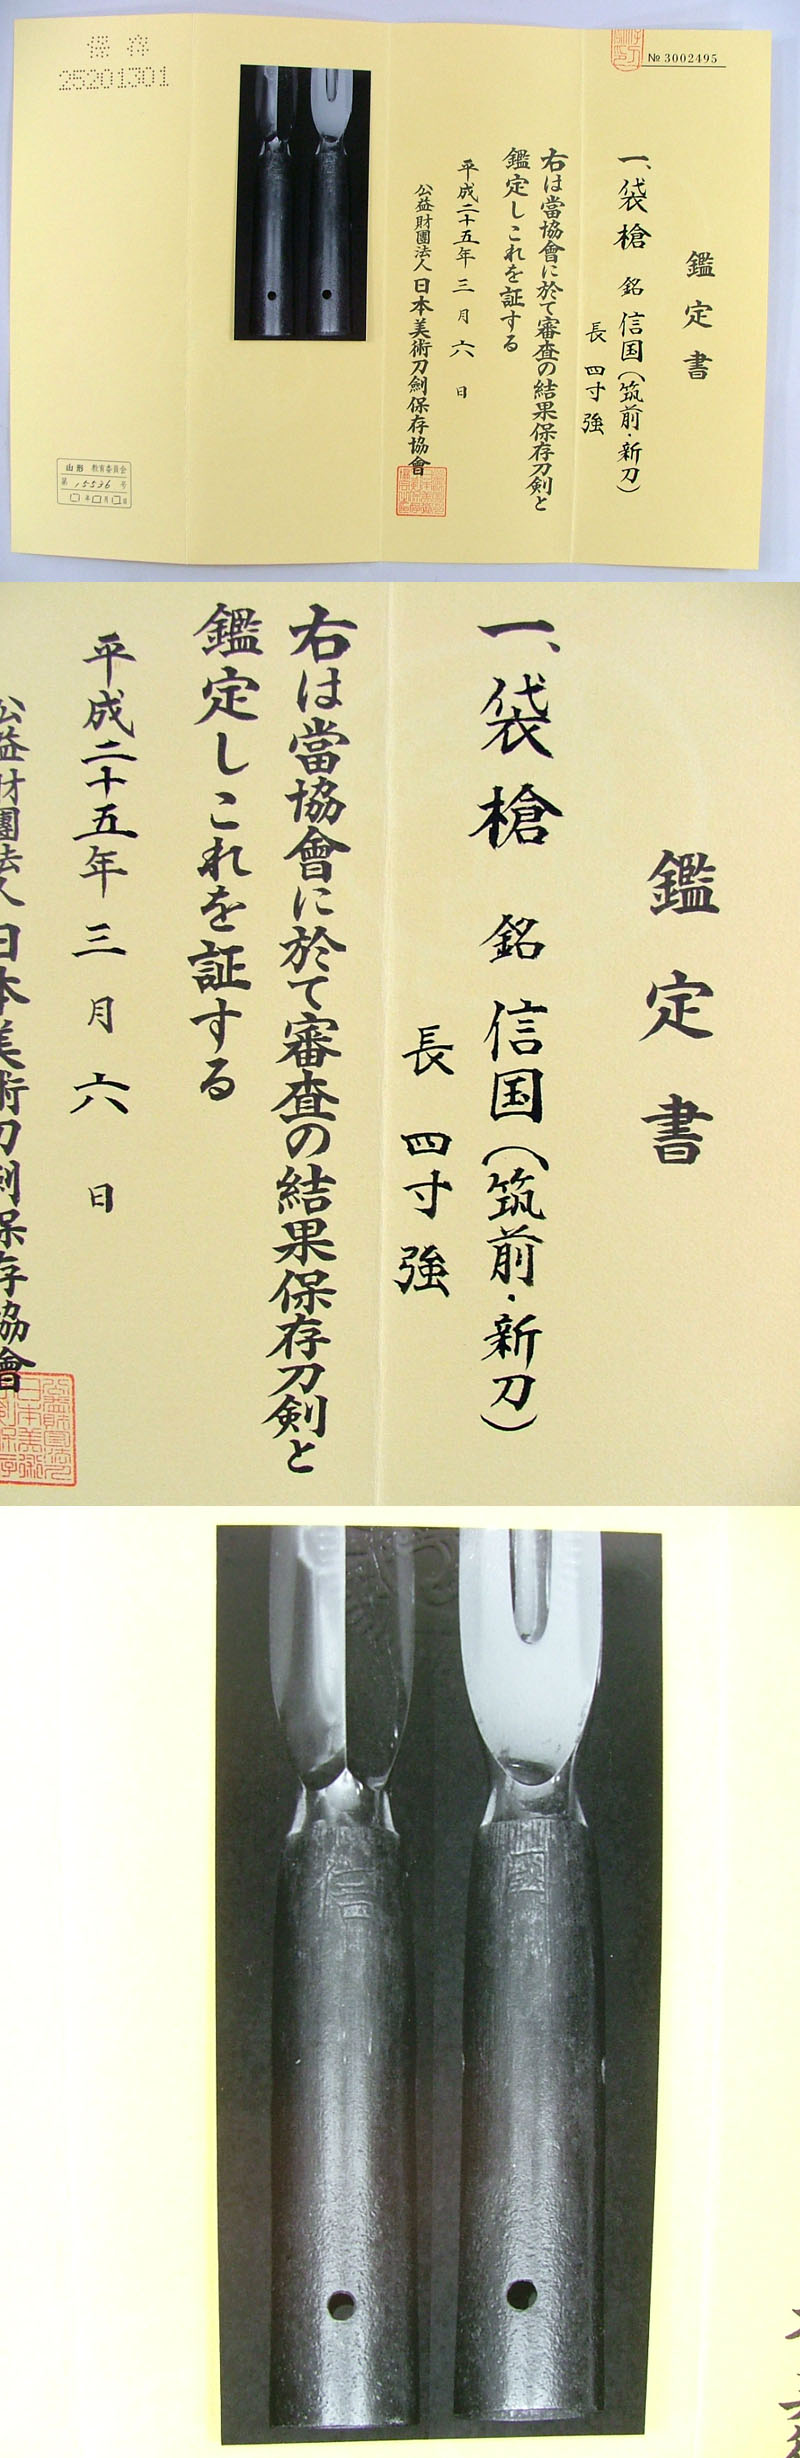 保存
25201301
№ 3002495
鑑定書
一、袋槍 銘 信国(筑前・新刀)
長 四寸強
右は當協會に於て審査の結果保存刀剣と
鑑定しこれを証する
平成二十五年 三月 六日
公益財團法人 日本美術刀劍保存協會
山形 教育委員会
第 15536 号
年 月 日
鑑定書
一、袋槍 銘 信国(筑前・新刀)
長 四寸強
右は當協會に於て審査の結果保存刀剣と
鑑定しこれを証する
平成二十五年 三月 六日
公益財團法人 日本美術刀劍保存協會
信
國